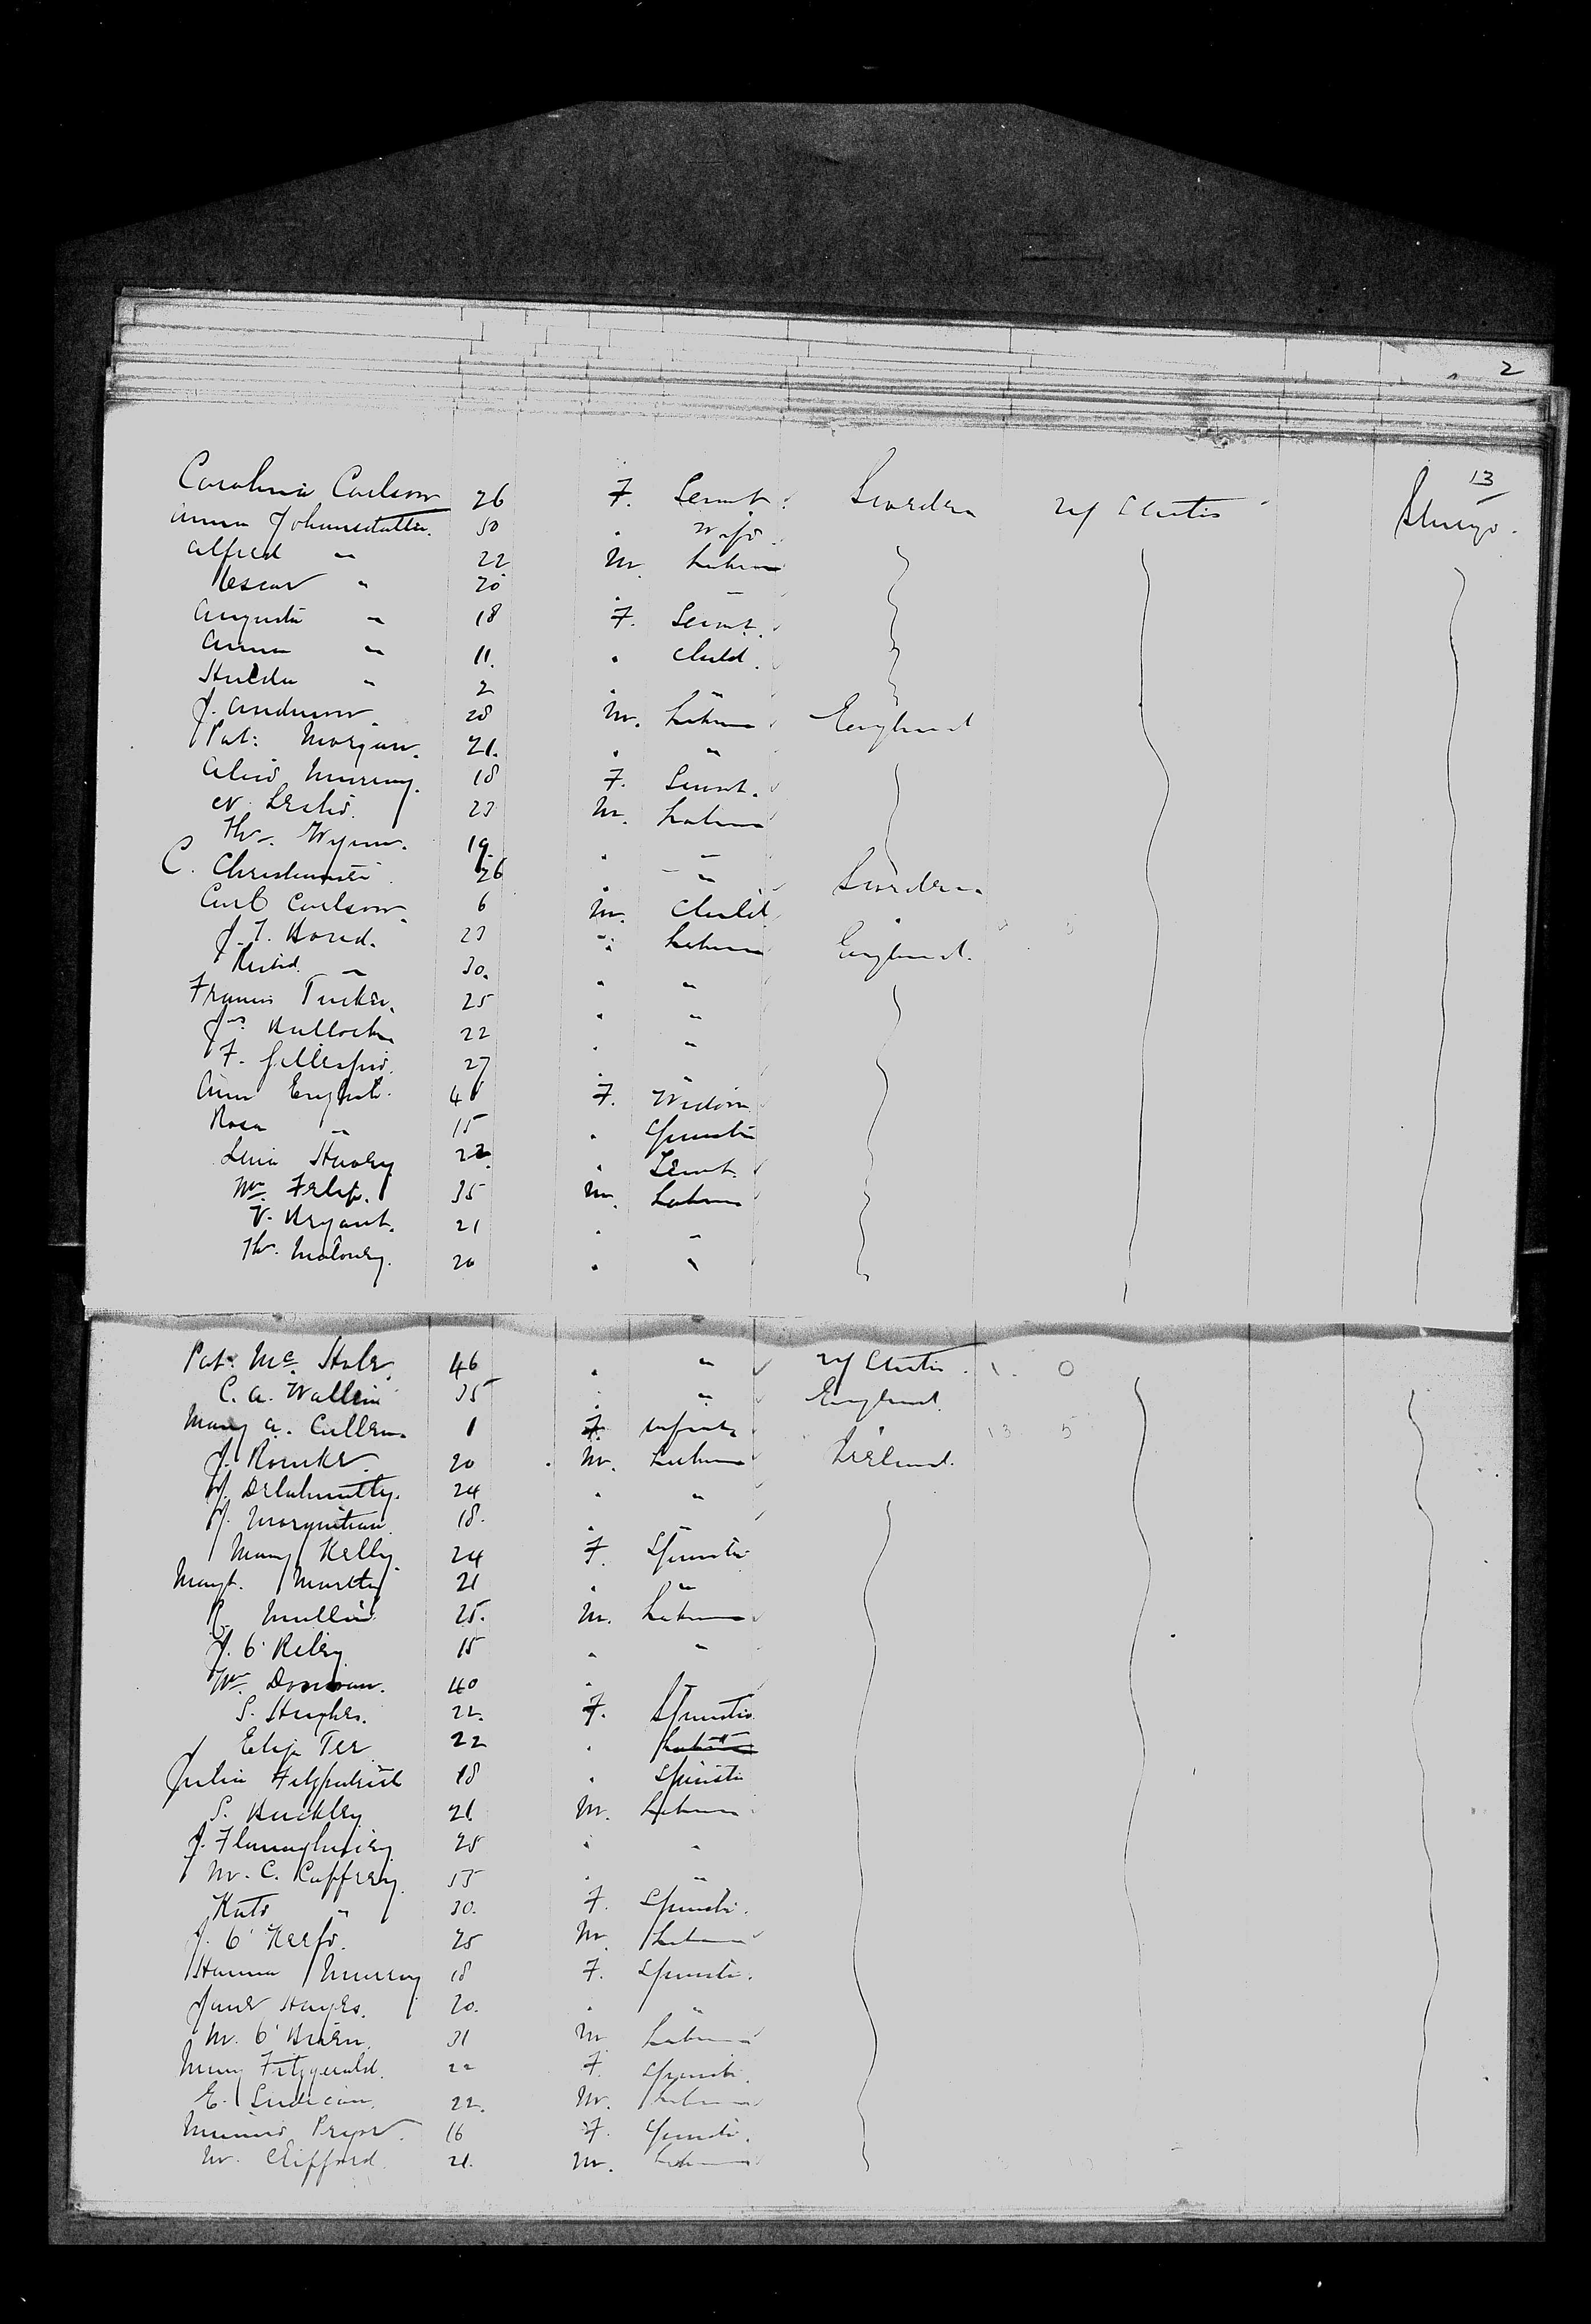 2
13
Carolina Carlson 26 F. Servt. Sweden U/ States Steerage.
Anna Johannsdatter. 50 " Wife
Alfred " 22 M. Labourer
Oscar " 20 " "
Augusta " 18 F. Servt.
Anna " 11. " Child.
Hulda " 2 " "
J. Anderson. 28 M. Labourer England
Pat: Morgan. 21. " "
Alice Murray. 18 F. Servt.
W. Leslie. 23 M. Labourer
Thos. Wynn. 19. " "
C. 26 " " Sweden
Carl Carlson. 6 M. Child
J. T. Hored. 23 " Labourer England.
Richd. " 30. " "
Francis Tucker. 25 " "
Js. Bullock 22 " "
F. Gillespie. 27 " "
Ann 41 F. Widow
Rosa " 15 " Spinster
Lena 22. " Servt.
Wm. 35 M. Labourer
T. Bryant. 21 " "
Thos. Moloney. 20 " "
Pat. Mc. 46 " " U/ States. 1. 0
C. A. Wallin 35 " " England.
Mary A. Cullen. 1 F. Infant 13 5
J. Rourke. 20 M. Labourer Ireland.
W. Delahuntly. 24 " "
18. " "
Mary Kelly. 24 F. Spinster
Margt. 21 " "
P. Mullin 25. M. Labourer
J. O'Reiley. 15 " "
Wm. Donovan. 40 "
S. Hughes. 22. F. Spinster
Eliza 22 "
Julia Fitzpatrick 18 " Spinster
S. Buckley. 21. M. Labourer
J. 25 " "
M. C. Caffrey. 55 " "
Kate " 30. F. Spinster.
J. O'Keefe. 25 M. Labourer
Hanna Murray 18 F. Spinster.
Jane Hayes. 20. " "
M. O'Brien. 31 M. Labourer
Mary Fitzgerald. 22 F. Spinster.
E. 22. M. Labourer
Minnie Pryor. 16 F. Spinster.
M. Clifford. 21. M. Labourer